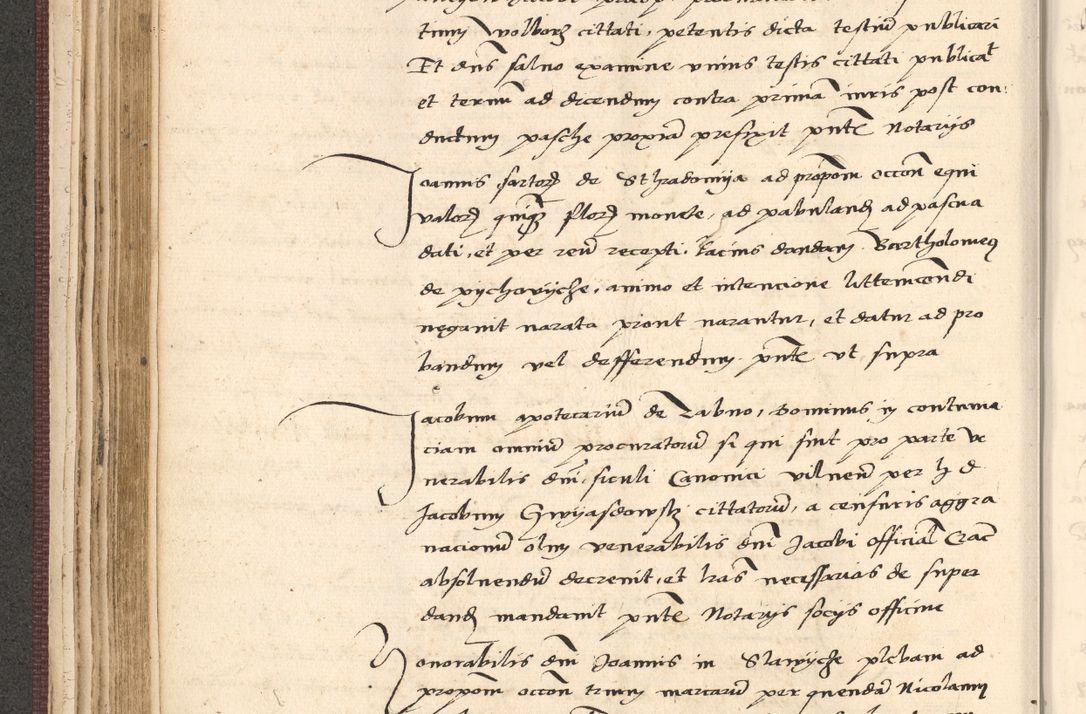 tinum Wolborz cittati, petentis dicta testiu publicari
Et dns salvo examine unius testis cittati publicat
et termu ad dicendum contra prima iuris post con
ductum pasche proxia prefixit pnte Notariis
Joannis sartor de Sthradomija ad propom occon equi
valor quinqz flor monete, ad pabuland ad pascua
dati, et per reu recepti. Bartholomeq
de pychovijche, animo et intencione litteincondi
negavit narata prout narantur, et datur ad pro
bandum vel defferendum pnte ut supra
Jacobum apotecariu de Zabno, Dominus in contuma
ciam omniu procuratoru si qui sint pro parte ve
nerabilis dni siculi Canonici vilnen per h d
Jacobum cittatoru, a censuris aggra
nacionu olim venerabilis dni Jacobi official Crac
absolvendu decrevit, et lras necessarias de super
dand mandavit pnte Notariis sociis officine
Honorabilis dni Joannis in Slawijche plebani ad
propom occon trium marcaru per quenda Nicolaum